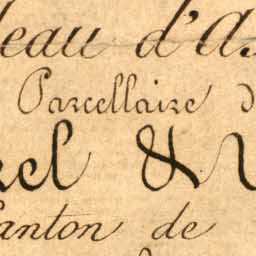 leau d'As
Parcellaire d
rel & V
Canton de